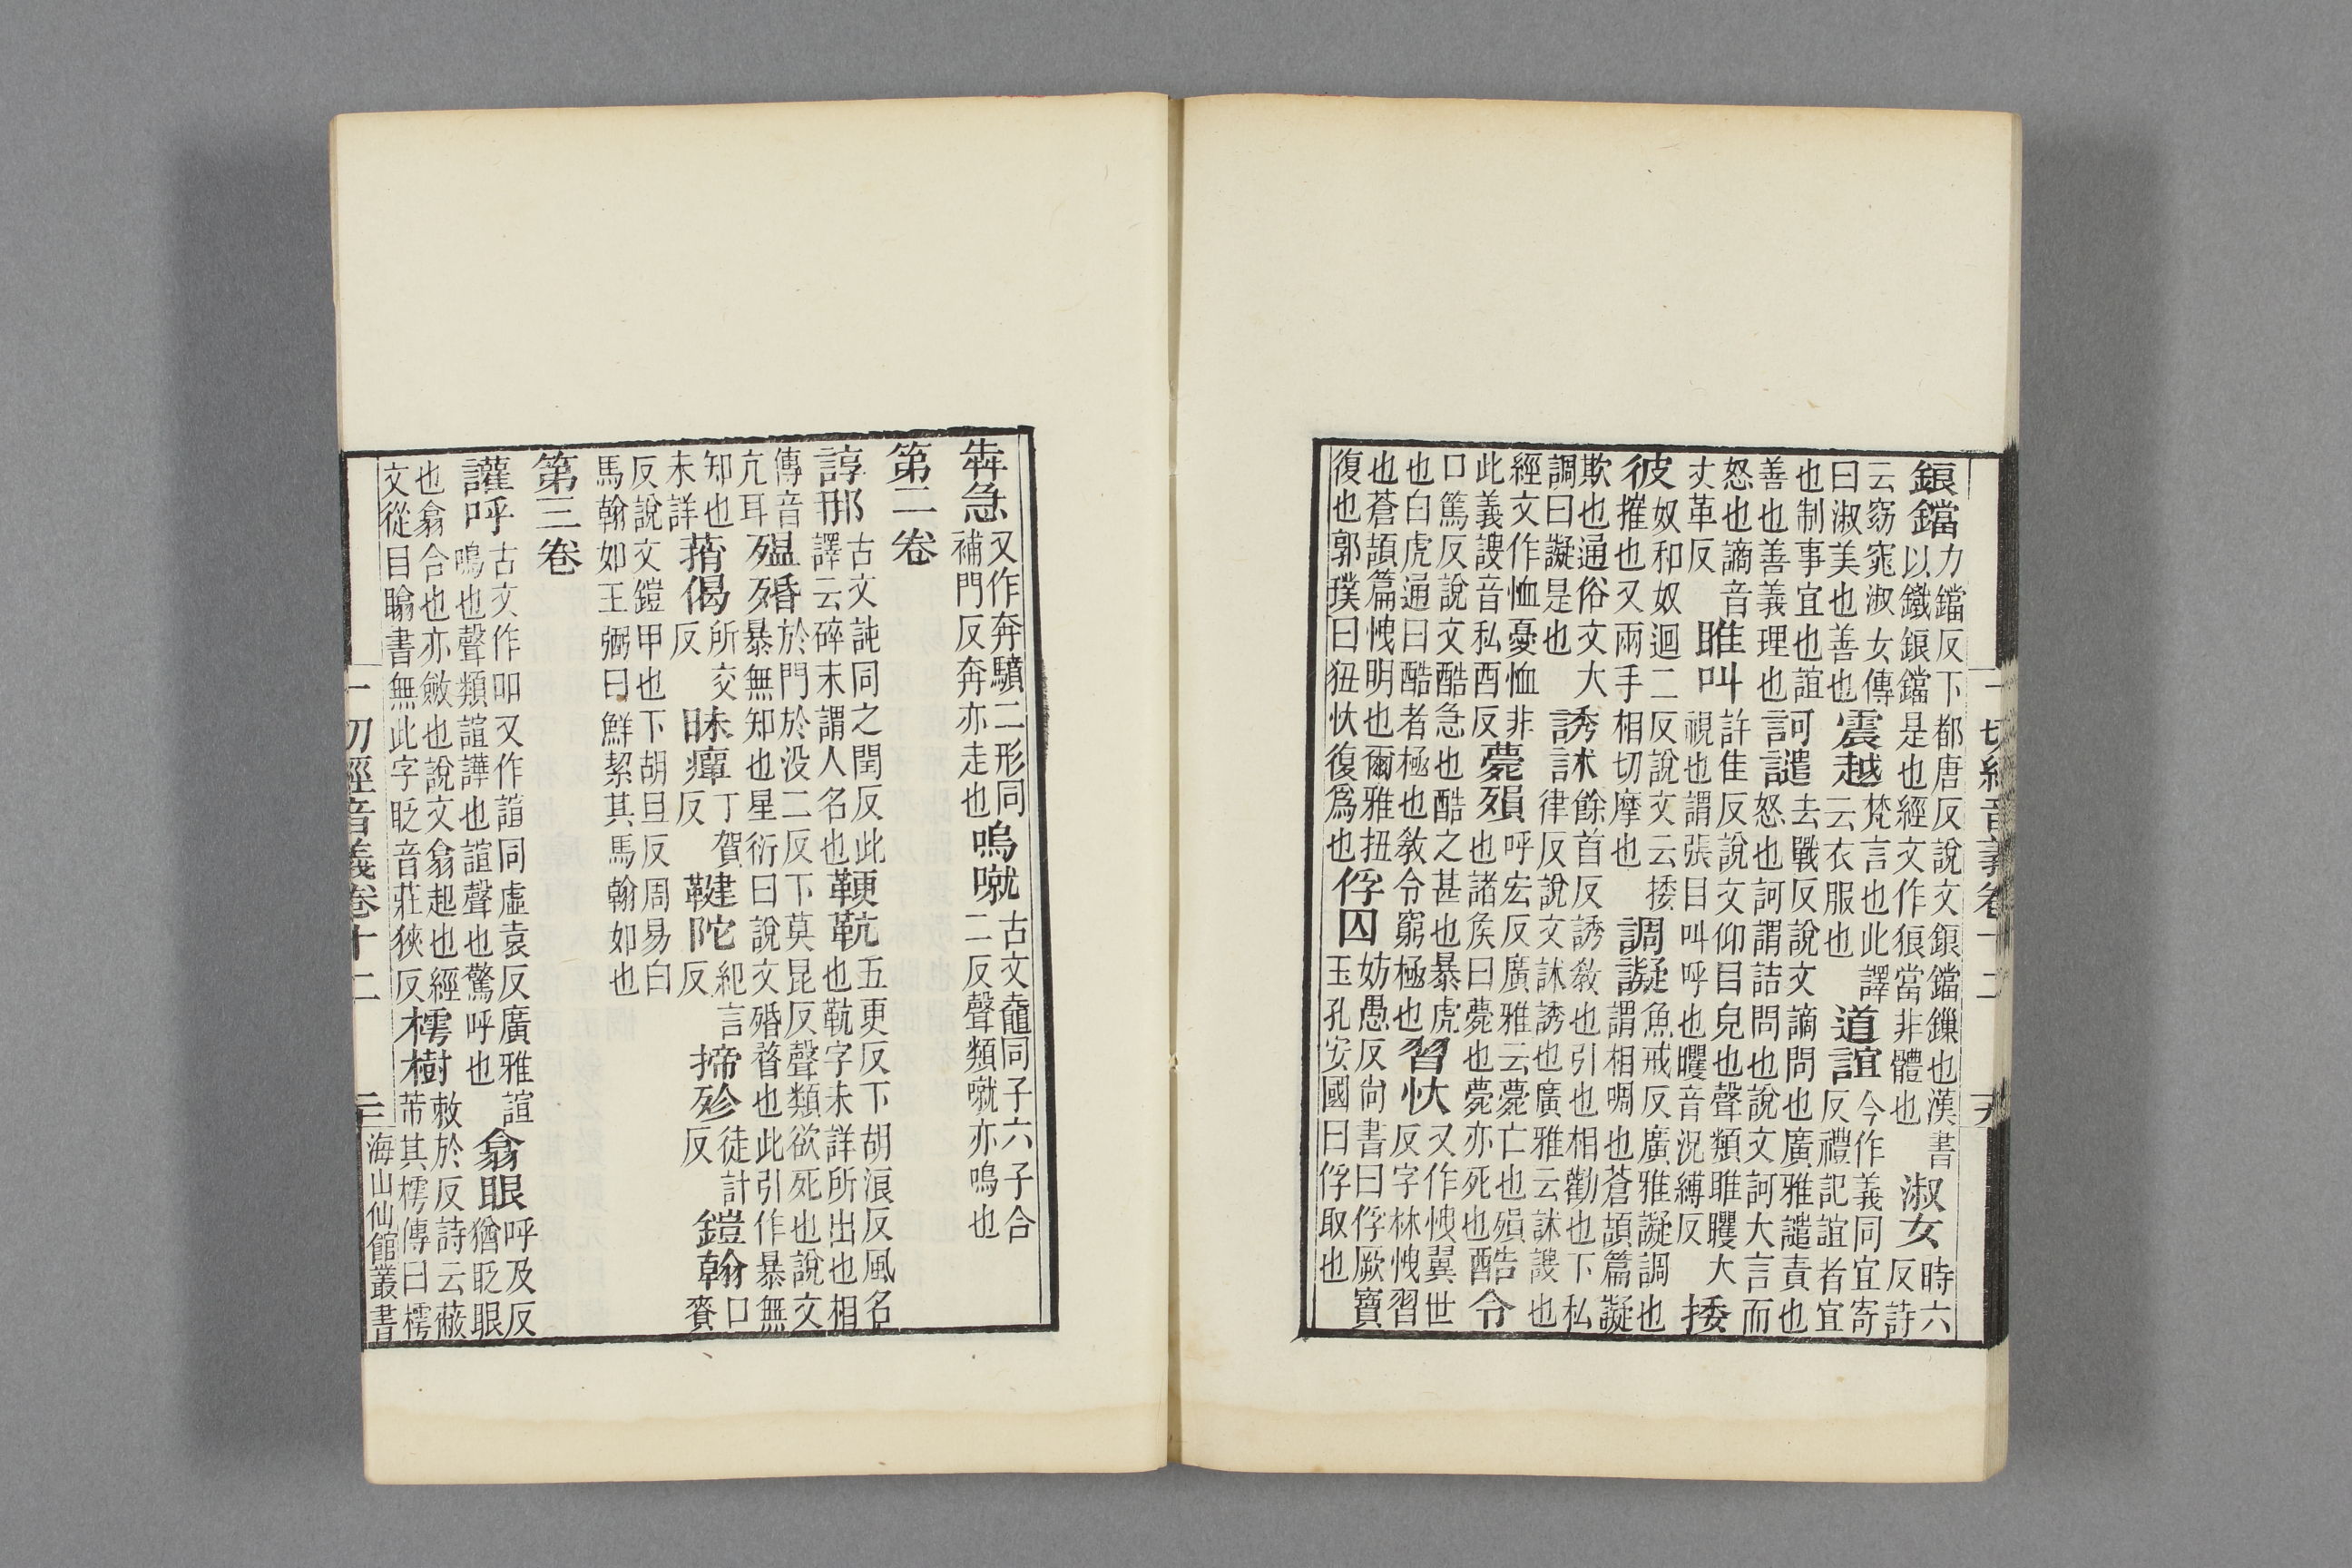 鋃鐺力鐺反下都唐反說文鋃鐺鏁也漢書
以鐵鋃鐺是也經文作狼當非體也淑女時六反詩
云窈窕淑女傳曰淑美也善也震越梵言也此譯云衣服也道誼今作義同宜寄反禮記誼者宜
也制事宜也誼善也善義理也訶譴去戰反說文謫問也廣雅譴責也
怒也訶謂詰問也說文訶大言而怒也謫音丈革反睢叫許隹反說文仰目皃也聲類睢矍大
視也謂張目叫呼也矍音況縛反捼
彼奴和奴迴二反說文云捼摧也又兩手相切摩也調譺魚戒反廣雅譺調也
謂相啁也蒼頡篇譺欺也通俗文大調曰譺是也誘訹餘首反誘教也引也相勸也下私
律反說文訹誘也廣雅云訹謏也經文作恤憂恤非
此義謏音私酉反薨殞呼宏反廣雅云薨亡也殞也諸矦曰薨也薨亦死也酷令
口篤反說文酷急也酷之甚也暴虎也白虎通曰酷者極也教令窮極也習忕又作愧翼世反字林愧習
也蒼頡篇愧明也爾雅扭復也郭璞曰狃忕復爲也俘囚妨愚反尙書曰俘厥寶玉孔安國曰俘取也
一切經音義卷十二
犇急又作奔驞二形同補門反奔亦走也嗚噈古文𪓰同子六子合二反聲類噈亦嗚也
第二卷
諄那古文訰同之閏反此譯云碎末謂人名也鞕䩑五更反下胡浪反風名也䩑字未詳所出也相
傳音亢耳殟殙於門於没二反下莫昆反聲類欲死也說文暴無知也星衍曰說文殙瞀也此引作暴無
知也未詳萷偈所交反昧癉丁賀反鞬陀紀言反揥殄徒計反鎧翰口賚
反說文鎧甲也下胡旦反周易白馬翰如王弼曰鮮絜其馬翰如也
第三卷
讙呼古文作吅又作諠同虛袁反廣雅諠鳴也聲類諠譁也諠聲也驚呼也翕眼呼及反猶眨眼
也翕合也亦斂也說文翕起也經文從目䁯書無此字眨音莊狹反樗樹敕於反詩云蔽芾其樗傳曰樗
一切經音義卷十二
海山仙館叢書